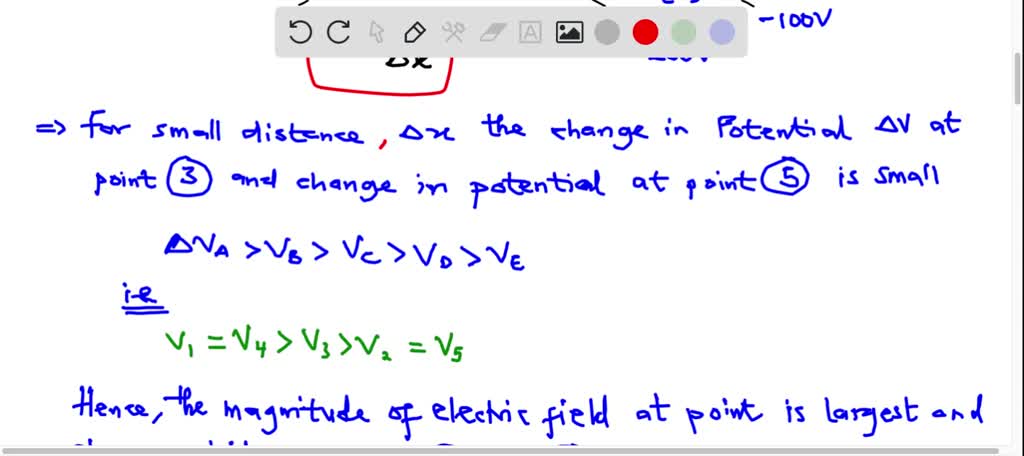 -100V
Δx
⇒ For small distance, Δx the change in Potential ΔV at
point ③ and change in potential at point ⑤ is small
ΔVA > VB > VC > VD > VE
i-e
V1 = V4 > V3 > V2 = V5
Hence, the magnitude of electric field at point is largest and